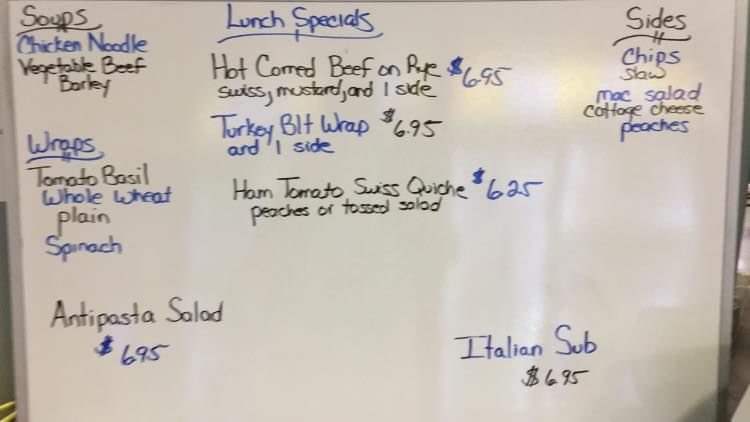 Soups
Chicken Noodle
Vegetable Beef
Barley
Wraps
Tomato Basil
Whole Wheat
plain
Spinach
Antipasta Salad
$6.95
Lunch Specials
Hot Corned Beef on Rye $6.95
swiss, mustard, and 1 side
Turkey Blt Wrap $6.95
and 1 side
Ham Tomato Swiss Quiche $6.25
peaches or tossed salad
Sides
Chips
slaw
mac salad
cottage cheese
peaches
Italian Sub
$6.95